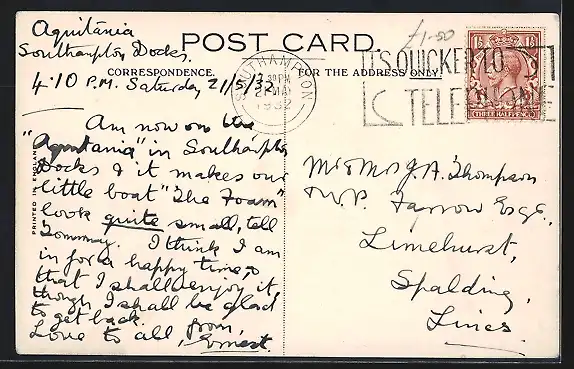 Aquitania
Southampton Docks.
4.10 P.M. Saturday 21/5/32.
POST CARD.
CORRESPONDENCE.
FOR THE ADDRESS ONLY.
£1-50
SOUTHAMPTON
21 MAY
1932
IT'S QUICKER TO
TELEPHONE
THREE HALFPENCE
PRINTED IN ENGLAND
Am now on the
"Aquitania" in Southampton
Docks & it makes our
little boat "The Foam"
look quite small, tell
Tommy. I think I am
in for a happy time, &
that I shall enjoy it,
though I shall be glad
to get back.
Love to all, from,
Ernest.
Mr & Mrs J.A. Thompson
& W.P. Farrow Esqe.,
Limehurst,
Spalding,
Lincs.